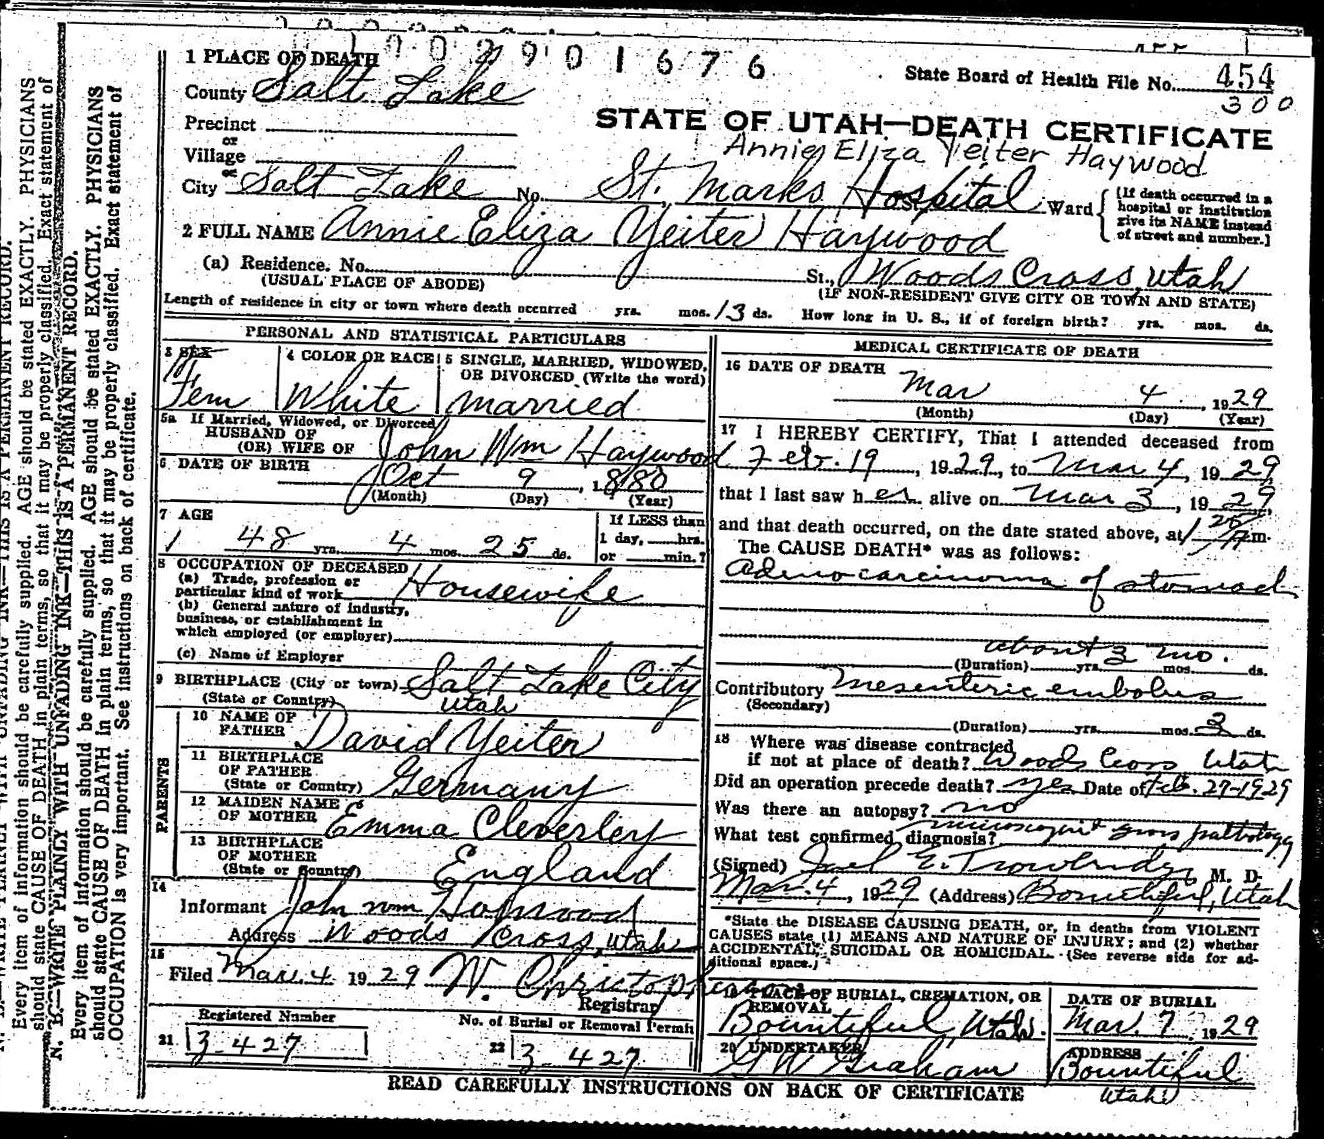 1002901676
1 PLACE OF DEATH
State Board of Health File No. 454
300
County Salt Lake
STATE OF UTAH—DEATH CERTIFICATE
Precinct
Annie Eliza Yeiter Haywood
or
Village
or
City Salt Lake No. St. Marks Hospital Ward
[If death occurred in a
hospital or institution
give its NAME instead
of street and number.]
2 FULL NAME Annie Eliza Yeiter Haywood
(a) Residence. No. St., Woods Cross, Utah
(USUAL PLACE OF ABODE) (IF NON-RESIDENT GIVE CITY OR TOWN AND STATE)
Length of residence in city or town where death occurred yrs. mos. 13 ds. How long in U. S., if of foreign birth? yrs. mos. ds.
PERSONAL AND STATISTICAL PARTICULARS
3 SEX
Fem
4 COLOR OR RACE
White
5 SINGLE, MARRIED, WIDOWED,
OR DIVORCED (Write the word)
married
5a If Married, Widowed, or Divorced
HUSBAND OF
(OR) WIFE OF John Wm Haywood
6 DATE OF BIRTH Oct 9, 1880
(Month) (Day) (Year)
7 AGE
48 yrs. 4 mos. 25 ds.
If LESS than
1 day, hrs.
or min.?
8 OCCUPATION OF DECEASED
(a) Trade, profession or
particular kind of work Housewife
(b) General nature of industry,
business, or establishment in
which employed (or employer)
(c) Name of Employer
9 BIRTHPLACE (City or town) Salt Lake City
(State or Country) Utah
PARENTS
10 NAME OF
FATHER David Yeiter
11 BIRTHPLACE
OF FATHER
(State or Country) Germany
12 MAIDEN NAME
OF MOTHER Emma Cleverley
13 BIRTHPLACE
OF MOTHER
(State or Country) England
14
Informant John Wm Haywood
Address Woods Cross, Utah
15
Filed Mar. 4 1929 W. Christopherson
Registrar
Registered Number
21 3-427
No. of Burial or Removal Permit
22 3-427
MEDICAL CERTIFICATE OF DEATH
16 DATE OF DEATH
Mar 4, 1929
(Month) (Day) (Year)
17 I HEREBY CERTIFY, That I attended deceased from
Feb. 19, 1929, to Mar 4, 1929,
that I last saw her alive on Mar 3, 1929,
and that death occurred, on the date stated above, at 1 25/A m.
The CAUSE DEATH* was as follows:
Adenocarcinoma of stomach
about 3 mo.
(Duration) yrs. mos. ds.
Contributory Mesenteric embolus
(Secondary)
(Duration) yrs. mos. 3 ds.
18 Where was disease contracted
if not at place of death? Woods Cross Utah
Did an operation precede death? yes Date of Feb. 27-1929
Was there an autopsy? no
What test confirmed diagnosis? gross pathology
(Signed) E. Trowbridge, M. D.
Mar. 4, 1929 (Address) Bountiful, Utah
*State the DISEASE CAUSING DEATH, or, in deaths from VIOLENT
CAUSES state (1) MEANS AND NATURE OF INJURY; and (2) whether
ACCIDENTAL, SUICIDAL OR HOMICIDAL. (See reverse side for ad-
ditional space.)
19 PLACE OF BURIAL, CREMATION, OR
REMOVAL
Bountiful, Utah.
DATE OF BURIAL
Mar. 7, 1929
20 UNDERTAKER
G W Graham
ADDRESS
Bountiful
Utah
READ CAREFULLY INSTRUCTIONS ON BACK OF CERTIFICATE
N. B.—WRITE PLAINLY WITH UNFADING INK—THIS IS A PERMANENT RECORD.
Every item of information should be carefully supplied. AGE should be stated EXACTLY. PHYSICIANS
should state CAUSE OF DEATH in plain terms, so that it may be properly classified. Exact statement of
N. B.—WRITE PLAINLY WITH UNFADING INK—THIS IS A PERMANENT RECORD.
Every item of information should be carefully supplied. AGE should be stated EXACTLY. PHYSICIANS
should state CAUSE OF DEATH in plain terms, so that it may be properly classified. Exact statement of
OCCUPATION is very important. See instructions on back of certificate.